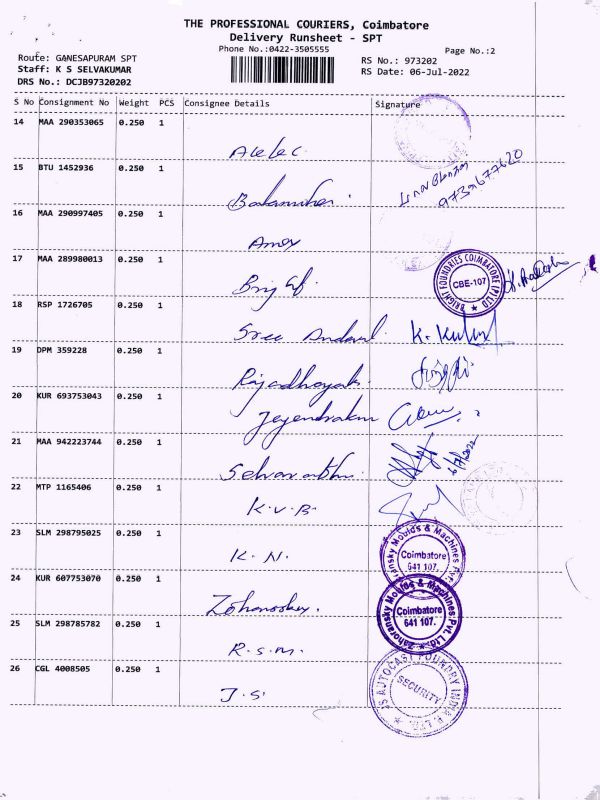 THE PROFESSIONAL COURIERS, Coimbatore
Delivery Runsheet - SPT
Phone No.:0422-3505555
Page No.:2
Route: GANESAPURAM SPT
Staff: K S SELVAKUMAR
DRS No.: DCJB97320202
RS No.: 973202
RS Date: 06-Jul-2022
S No Consignment No Weight PCS Consignee Details Signature
14 MAA 290353065 0.250 1
15 BTU 1452936 0.250 1
9739677620
16 MAA 290997405 0.250 1
Amex
17 MAA 289980013 0.250 1
BRIGHT FOUNDRIES COIMBATORE (P) LTD
CBE-107
18 RSP 1726705 0.250 1
Sree Andavl K. Kumar
19 DPM 359228 0.250 1
20 KUR 693753043 0.250 1
Jeyendrakum
21 MAA 942223744 0.250 1
22 MTP 1165406 0.250 1
K.V.B.
23 SLM 298795025 0.250 1
K. N.
Moulds & Machines Pvt.
Coimbatore
641 107.
24 KUR 607753070 0.250 1
Zahoransky Moulds & Machines Pvt. Ltd.
Coimbatore
641 107.
25 SLM 298785782 0.250 1
R.S.M.
26 CGL 4008505 0.250 1
J.S.
JS AUTOCAST FOUNDRY INDIA P. LTD
SECURITY